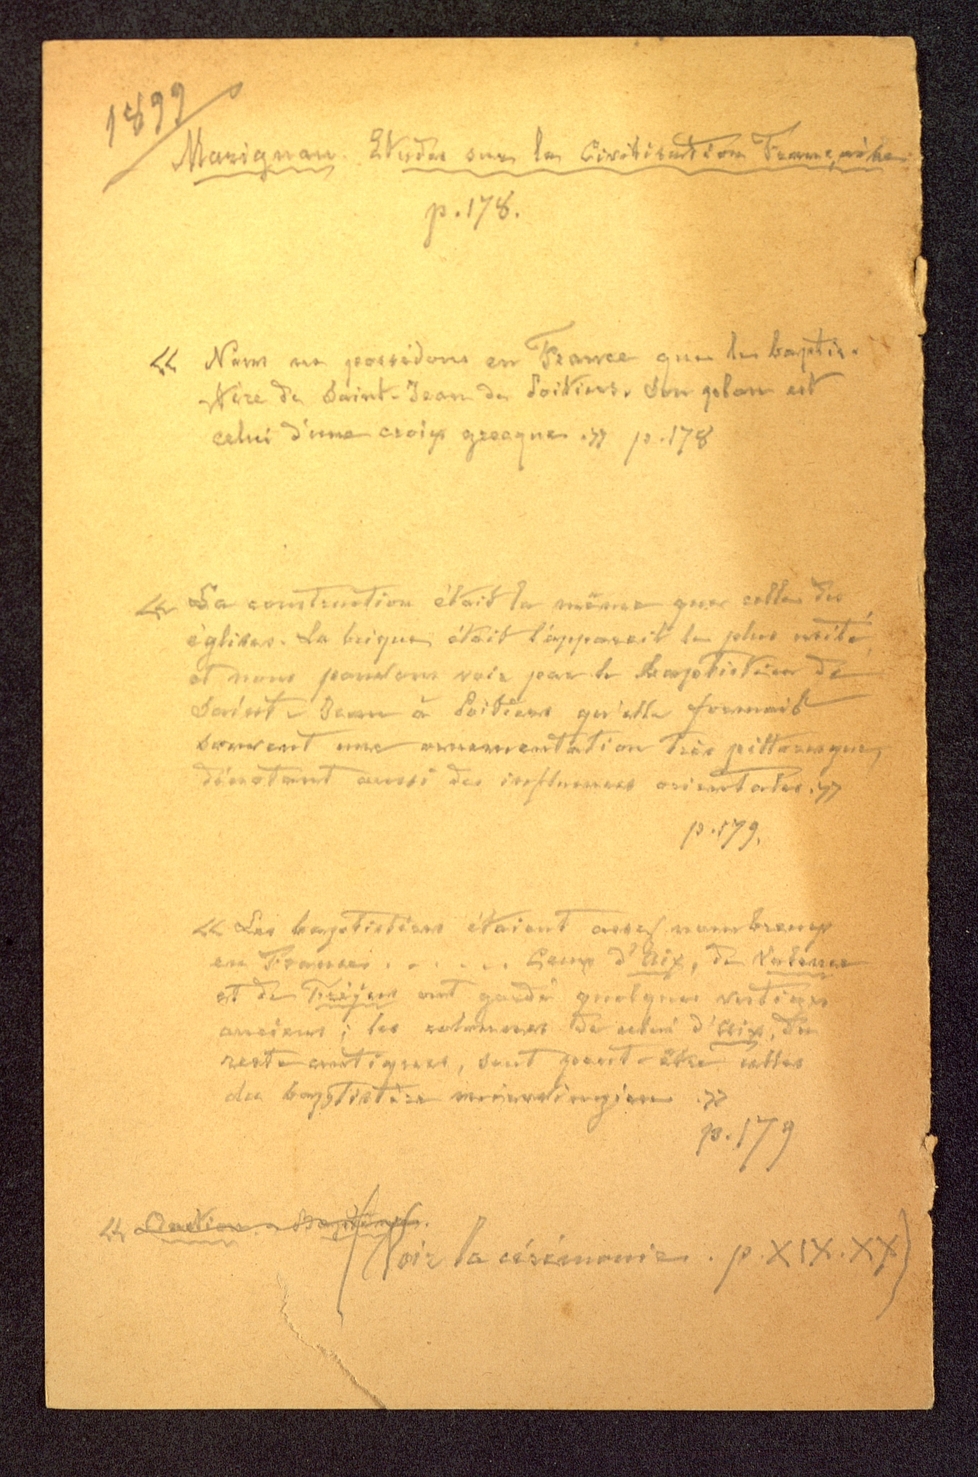 1899
Marignan. Etudes sur la Civilisation Française.
p. 178.
« Nous ne possédons en France que le baptis-
tère de Saint-Jean de Poitiers. Son plan est
celui d'une croix grecque. » p. 178
« La construction était la même que celle des
églises. La brique était l'appareil le plus usité,
et nous pouvons voir par le baptistère de
Saint-Jean à Poitiers qu'elle formait
souvent une ornementation très pittoresque,
dénotant aussi des influences orientales. »
p. 179.
« Les baptistères étaient assez nombreux
en France . . . . . Ceux d'Aix, de Valence
et de Fréjus ont gardé quelques vestiges
anciens ; les colonnes de celui d'Aix, du
reste antiques, sont peut-être celles
du baptistère mérovingien . »
p. 179
«
(Voir la cérémonie . p. XIX. XX)